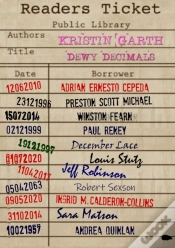 Readers Ticket
Public Library
Authors KRISTIN GARTH
Title DEWY DECIMALS
Date Borrower
12062010 ADRIAN ERNESTO CEPEDA
23121996 PRESTON SCOTT MICHAEL
15072014 WINSTON FEARN
02121999 PAUL REKEY
19121997 December Lace
01072020 Louis Stutz
11042013 Jeff Robinson
05042063 Robert Sexson
09052020 INGRID M. CALDERON-COLLINS
31102014 Sara Matson
10021957 ANDREA QUINLAN